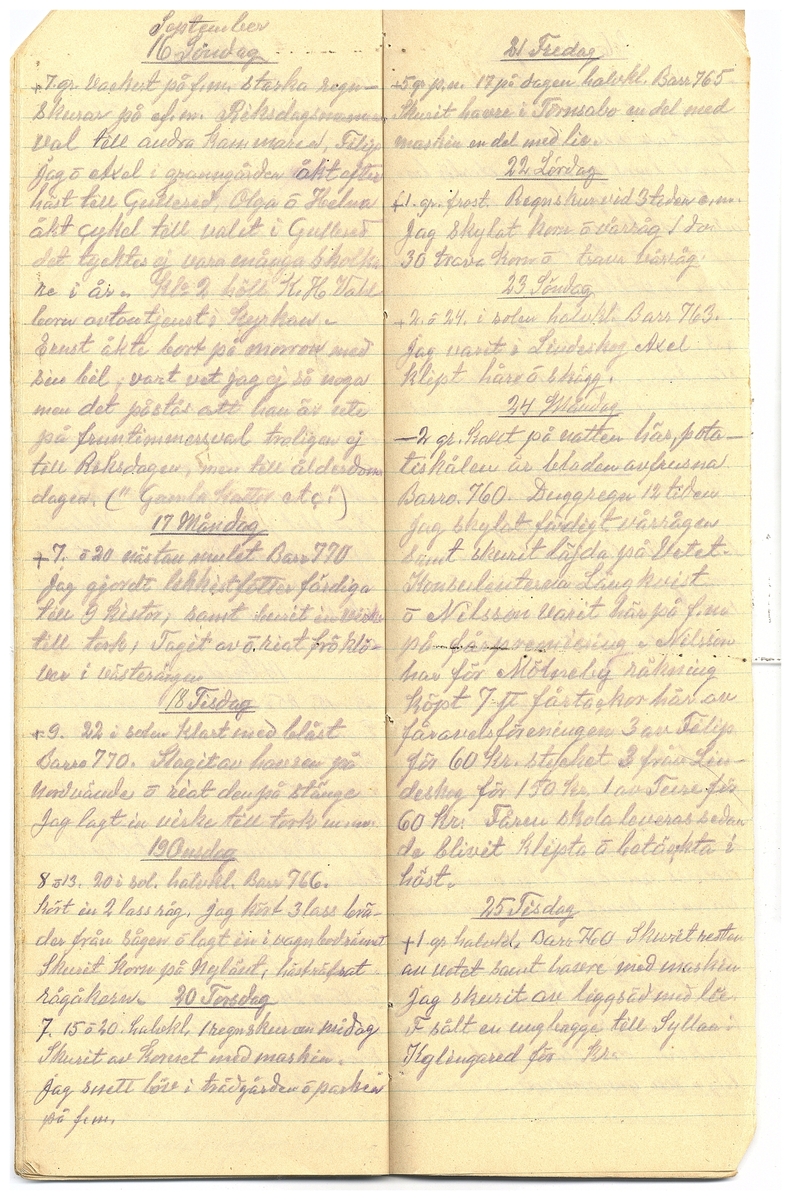 September
16 Söndag
+7 gr. Vackert på f.m. starka regn-
skurar på e.m. Riksdagsmanna
val till andra kammaren, Filip
jag o Axel i granngården åkt efter
häst till Gullered, Olga o Helma
åkt cykel till valet i Gullered
det tycktes ej vara många skolka
re i år. Kl. 2 höll K. H. Vahl
born avton tjenst i Kyrkan.
Ernst åkte bort på morron med
sin bil, vart vet jag ej så noga
men det påstås att han är ute
på fruntimmersval troligen ej
till Riksdagen, men till ålderdoms
dagen. ("Gamla Kattor etc.")
17 Måndag
+7. o 20 nästan mulet Barr 770
Jag gjordt likkistfötter färdiga
till 9 kistor, samt burit in virke
till tork, Tagit av o riat fröklö-
ver i västerängen
18 Tisdag
+9. 22 i solen Klart med blåst
Barro 770. Slagit av havren på
Nordvände o riat den på stänge
Jag lagt in virke till tork m.m.
19 Onsdag
8 o 13. 20 i sol. halvkl. Barr 766.
Kört in 2 lass råg. jag kört 3 lass brä-
der från sågen o lagt in i vagnbodrämet
Skurit Korn på Nylänt, hästräfsat
rågåkern. 20 Torsdag
7. 15 o 20. halvkl. 1 regnskur om midag
Skurit av Kornet med maskin.
Jag snett löv i trädgården o parken
på f.m.
21 Fredag
+5 gr p.m. 17 på dagen halvkl. Barr 765
Skurit havre i Törnsabo en del med
maskin en del med lie.
22 Lördag
+1. gr. frost. Regnskur vid 3 tiden e.m.
Jag skylat korn o vårråg 1 da.
30 trava Korn o trava vårråg.
23 Söndag
+2. o 24. i solen halvkl. Barr 763.
Jag varit i Lindeskog Axel
klipt håre o skägg.
24 Måndag
—2 gr. kallt på natten här, pota-
tiskålen är bladen avfrusna
Barro. 760. Duggregn 12 tiden
Jag skylat färdigt vårrågen
samt skurit läjda på Vetet.
Konsulenterna Långkvist
o Nilsson varit här på f.m
på fårpremiering. Nilsson
har för Mölneby räkning
köpt 7 st fårtackor här av
fåravelsföreningen 3 av Filip
för 60 Kr. stycket 3 från Lin-
deskog för 150 Kr. 1 av Ture för
60 Kr. Fåren skola leveras sedan
de blivit klipta o betäckta i
höst.
25 Tisdag
+1 gr halvkl. Barr 760 Skurit resten
av vetet samt havre med maskin
Jag skurit av liggsäd med lie.
F sålt en ungbagge till Syllaa i
Kylingared för Kr.